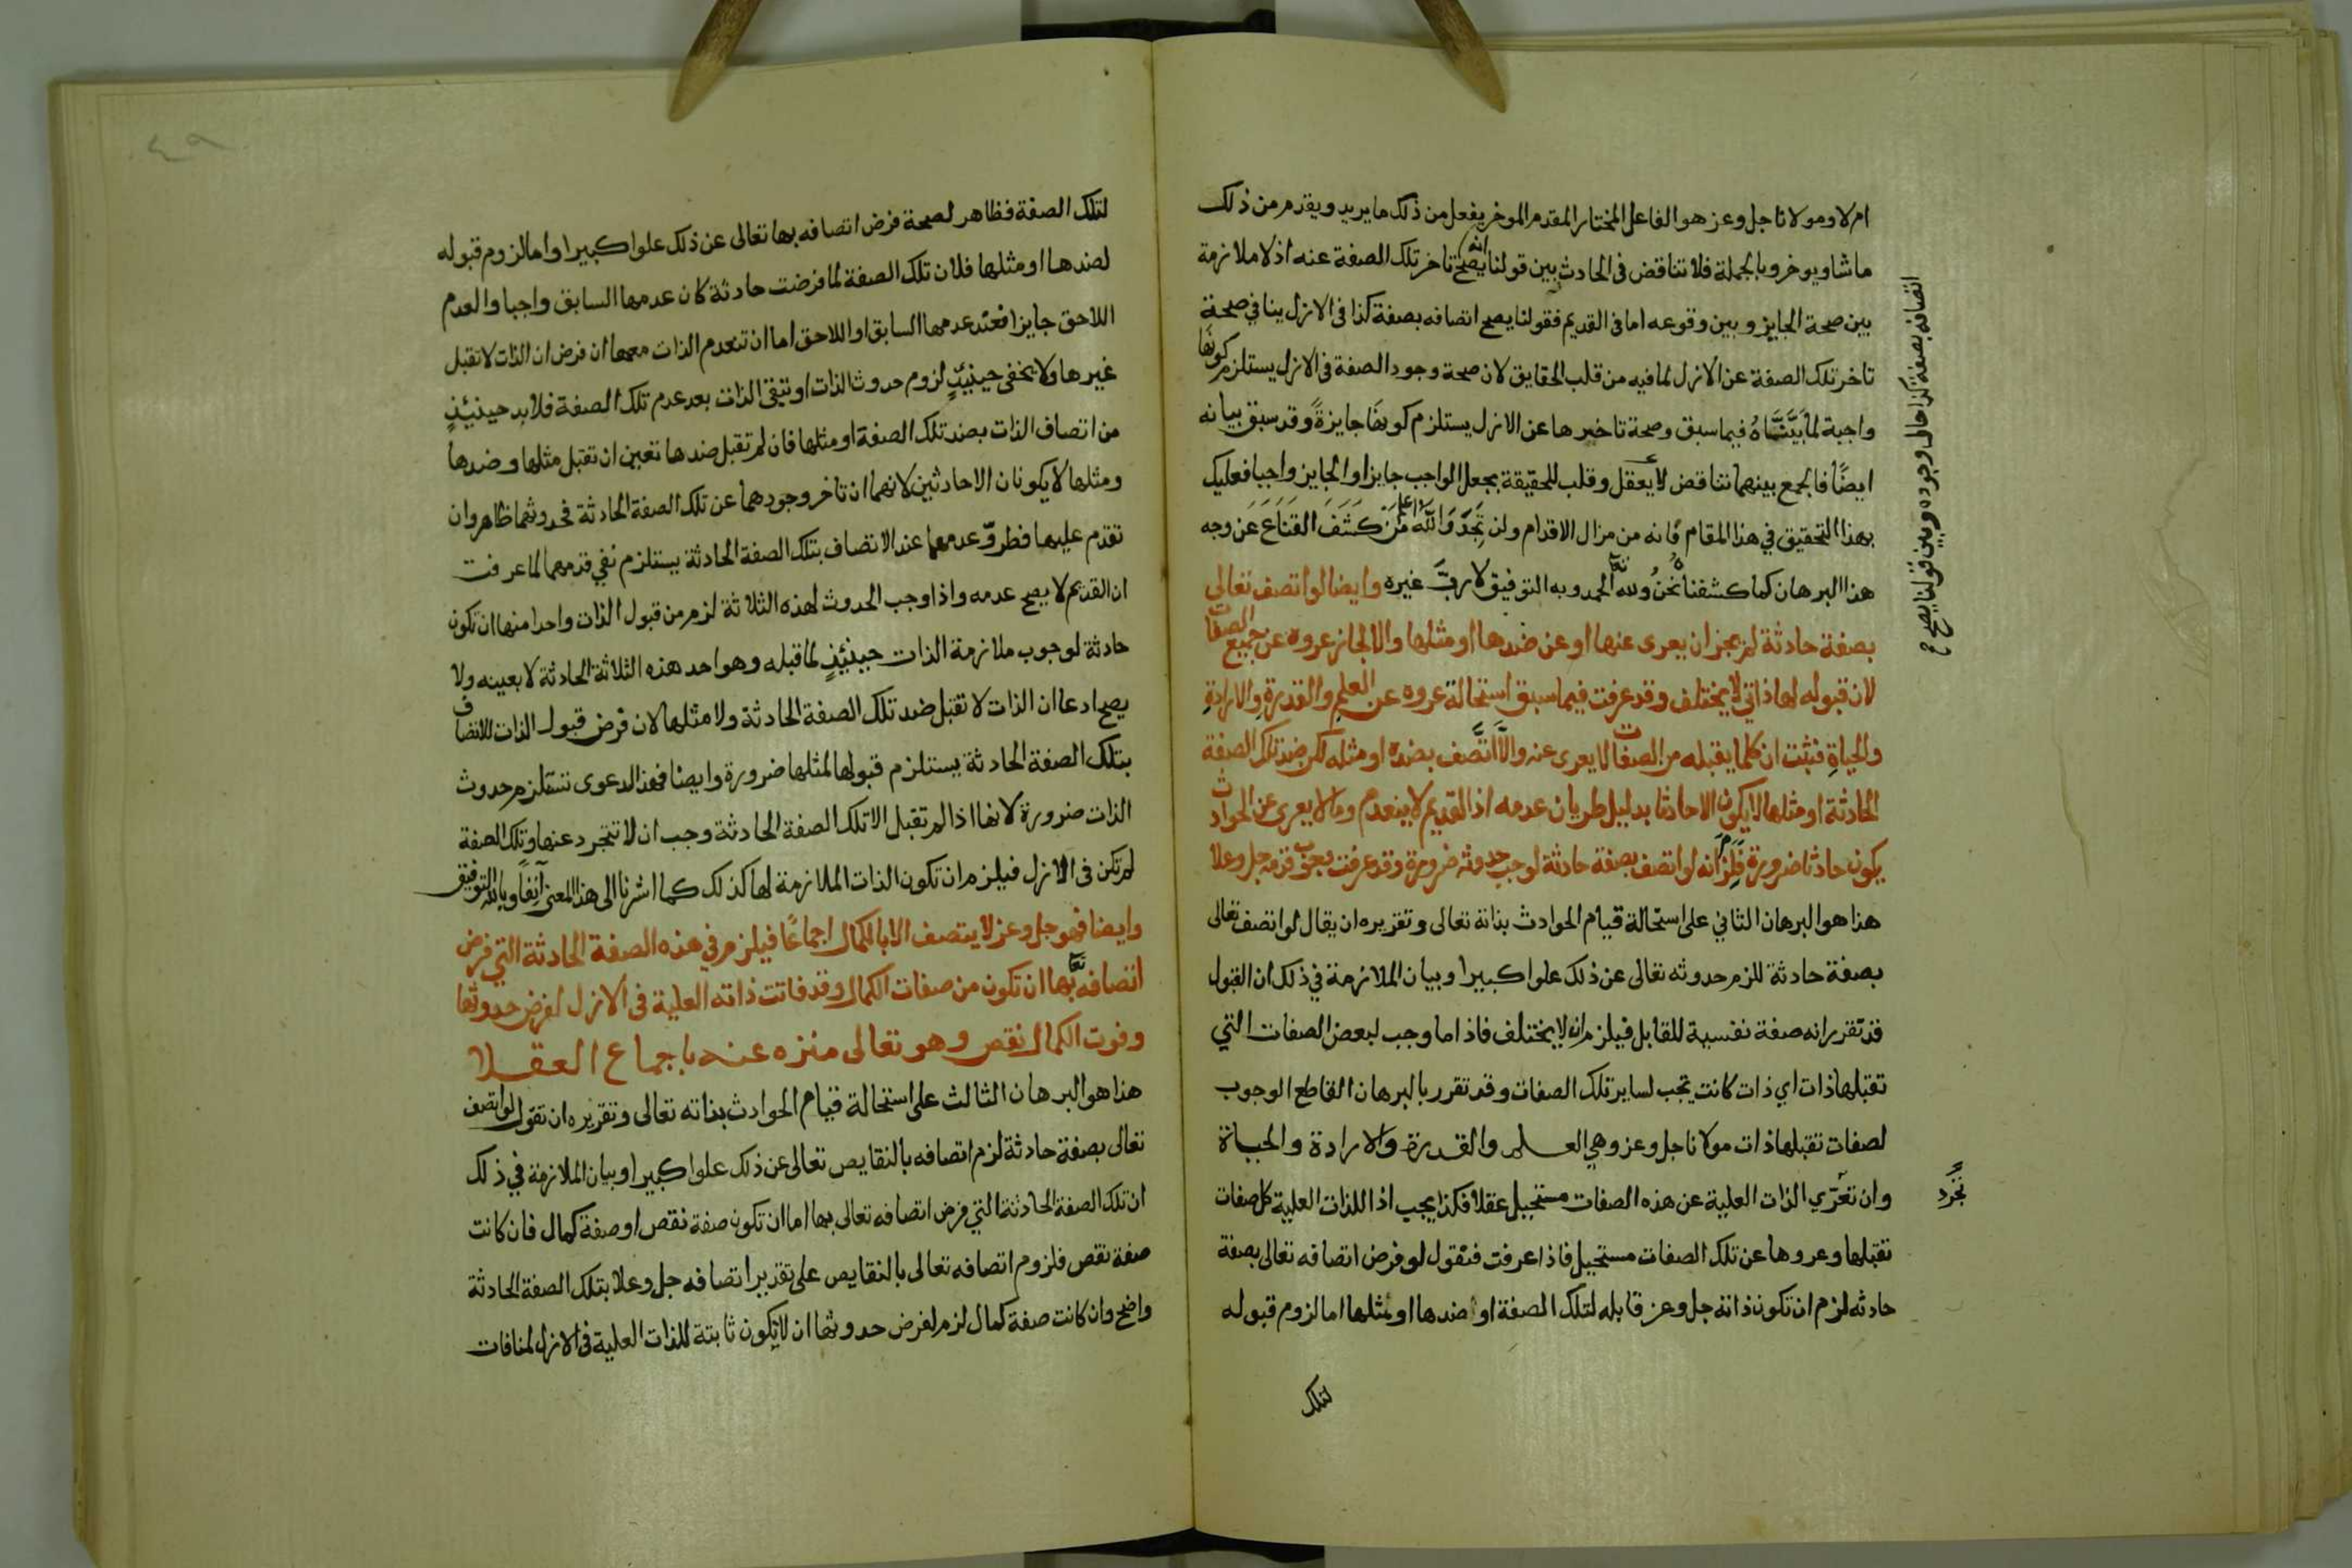 ام لا ومولانا جل وعز هو الفاعل المختار المقدم الموخر يفعل من ذلك ما يريد ويقدم من ذلك
ما شا ويوخر وبالجملة فلا تناقض في الحادث بين قولنا انه يصح تاخر تلك الصفة عنه اذ لا ملازمة
بين صحة الجايز وبين وقوعه اما في القديم فقولنا يصح اتصافه بصفة كذا في الازل ينافي صحة
تاخر تلك الصفة عن الازل لما فيه من قلب الحقايق لان صحة وجود الصفة في الازل يستلزم كونها
واجبة لما بيناه فيما سبق وصحة تاخيرها عن الازل يستلزم كونها جايزة وقد سبق بيانه
ايضًا فالجمع بينهما تناقض لا يعقل وقلب للحقيقة بجعل الواجب جايزا والجايز واجبا فعليك
بهذا التحقيق في هذا المقام فانه من مزال الاقدام ولن تجد والله اعلم من كشف القناع عن وجه
هذا البرهان كما كشفناه نحن ولله تعالى الحمد وبه التوفيق لا رب غيره وايضا لو اتصف تعالى
بصفة حادثة لم يجز ان يعرى عنها او عن ضدها او مثلها والا لجاز عروه عن جميع الصفات
لان قبوله لها ذاتي لا يختلف وقد عرفت فيما سبق استحالة عروه عن العلم والقدرة والارادة
والحياة فثبت ان كلما يقبله من الصفات لا يعرى عنه والا اتصف بضده او مثله لكن ضد تلك الصفة
الحادثة او مثلها لا يكون الا حادثا بدليل طريان عدمه اذ القديم لا ينعدم وما لا يعرى عن الحوادث
يكون حادثا ضرورة فلزم انه لو اتصف بصفة حادثة لوجب حدوثه ضرورة وقد عرفت وجوب قدمه جل وعلا
هذا هو البرهان الثاني على استحالة قيام الحوادث بذاته تعالى وتقريره ان يقال لو اتصف تعالى
بصفة حادثة للزم حدوثه تعالى عن ذلك علوا كبيرا وبيان الملازمة في ذلك ان القبول
قد تقرر انه صفة نفسية للقابل فيلزم انه لا يختلف فاذا ما وجب لبعض الصفات التي
تقبلها ذات اي ذات كانت يجب لساير تلك الصفات وقد تقرر بالبرهان القاطع الوجوب
لصفات تقبلها ذات مولانا جل وعز وهي العلم والقدرة والارادة والحياة
وان تعرّي الذات العلية عن هذه الصفات مستحيل عقلا فكذا يجب اذا للذات العلية كل صفات
تقبلها وعروها عن تلك الصفات مستحيل فاذا عرفت فنقول لو فرض اتصافه تعالى بصفة
حادثه لزم ان تكون ذاته جل وعز قابله لتلك الصفة او ضدها او مثلها اما لزوم قبوله
لتلك
اتصافه بصفة كذا حال وجوده وبين قولنا يصح
تجرد
لتلك الصفة فظاهر لصحة فرض اتصافه بها تعالى عن ذلك علوا كبيرا واما لزوم قبوله
لضدها او مثلها فلان تلك الصفة لما فرضت حادثة كان عدمها السابق واجبا والعدم
اللاحق جايزا فعند عدمها السابق او اللاحق اما ان تنعدم الذات معها ان فرض ان الذات لا تقبل
غيرها ولا يخفى حينيئذٍ لزوم حدوث الذات او تبقى الذات بعد عدم تلك الصفة فلا بد حينيئذٍ
من اتصاف الذات بضد تلك الصفة او مثلها فان لم تقبل ضدها تعين ان تقبل مثلها وضدها
ومثلها لا يكونان الا حادثين لانهما ان تاخر وجودهما عن تلك الصفة الحادثة فحدوثهما ظاهر وان
تقدم عليها فطروّ عدمهما عند الاتصاف بتلك الصفة الحادثة يستلزم نفي قدمهما لما عرفت
ان القديم لا يصح عدمه واذا وجب الحدوث لهذه الثلاثة لزم من قبول الذات واحدا منها ان تكون
حادثة لوجوب ملازمة الذات حينيئذٍ لما قبله وهو احد هذه الثلاثة الحادثة لا بعينه ولا
يصح ادعا ان الذات لا تقبل ضد تلك الصفة الحادثة ولا مثلها لان فرض قبول الذات للاتصاف
بتلك الصفة الحادثة يستلزم قبولها لمثلها ضرورة وايضا فهذ الدعوى تستلزم حدوث
الذات ضرورة لانها اذا لم تقبل الا تلك الصفة الحادثة وجب ان لا تتجرد عنها وتلك الصفة
لم تكن في الازل فيلزم ان تكون الذات الملازمة لها كذلك كما اشرنا الى هذا المعنى آنفًا وبالله التوفيق
وايضا فهو جل وعز لا يتصف الا بالكمال اجماعًا فيلزم في هذه الصفة الحادثة التي فرض
اتصافه تعالى بها ان تكون من صفات الكمال وقد فاتت ذاته العلية في الازل لفرض حدوثها
وفوت الكمال نقص وهو تعالى منزه عنه باجماع العقلا
هذا هو البرهان الثالث على استحالة قيام الحوادث بذاته تعالى وتقريره ان تقول لو اتصف
تعالى بصفة حادثة لزم اتصافه بالنقايص تعالى عن ذلك علوا كبيرا وبيان الملازمة في ذلك
ان تلك الصفة الحادثة التي فرض اتصافه تعالى بها اما ان تكون صفة نقص او صفة كمال فان كانت
صفة نقص فلزوم اتصافه تعالى بالنقايص على تقدير اتصافه جل وعلا بتلك الصفة الحادثة
واضح وان كانت صفة كمال لزم لفرض حدوثها ان لا يكون ثابتة للذات العلية في الازل لمنافات
٤٩